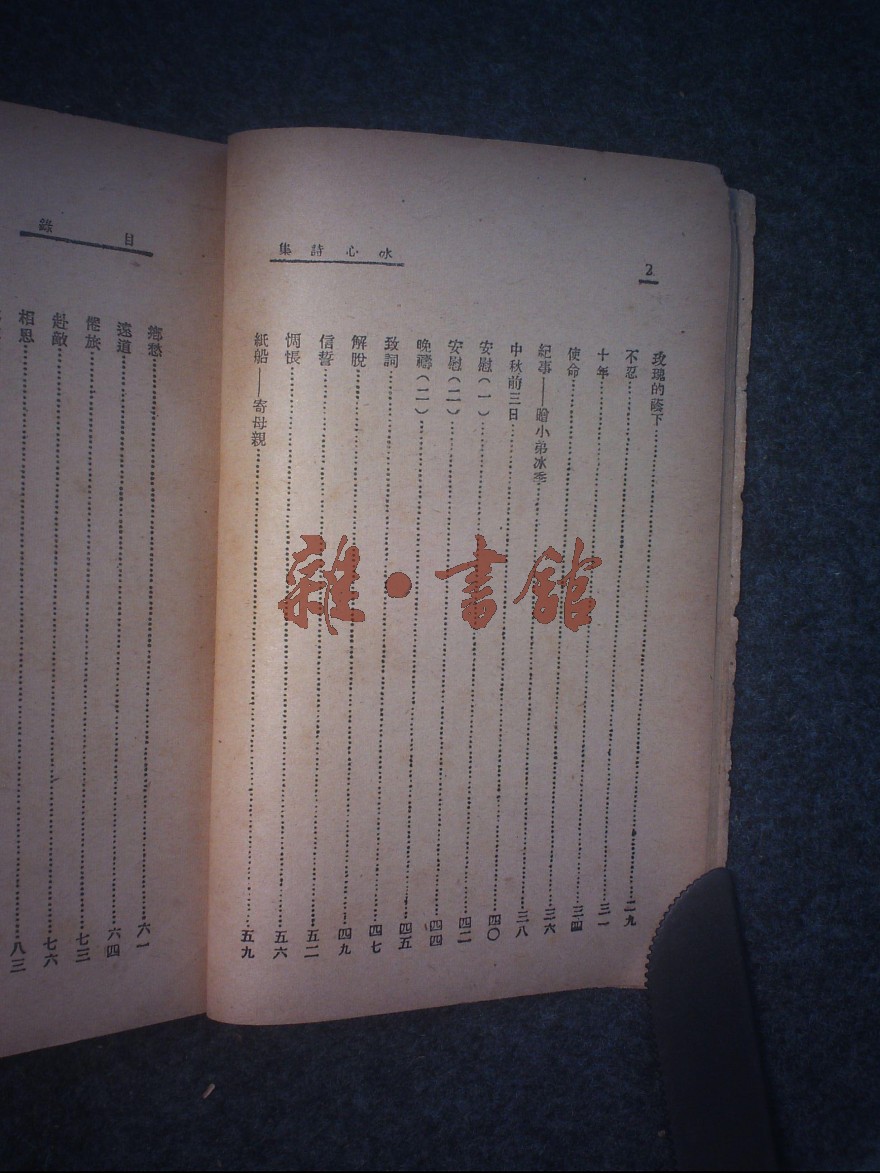 冰心詩集
2
玫瑰的蔭下……二九
不忍……三一
十年……三四
使命……三六
紀事——贈小弟冰季……三八
中秋前三日……四〇
安慰(一)……四二
安慰(二)……四四
晚禱(二)……四五
致詞……四七
解脫……四九
信誓……五二
惆悵……五六
紙船——寄母親……五九
目錄
鄉愁……六一
遠道……六四
倦旅……七三
赴敵……七六
相思……八三
雜·書館